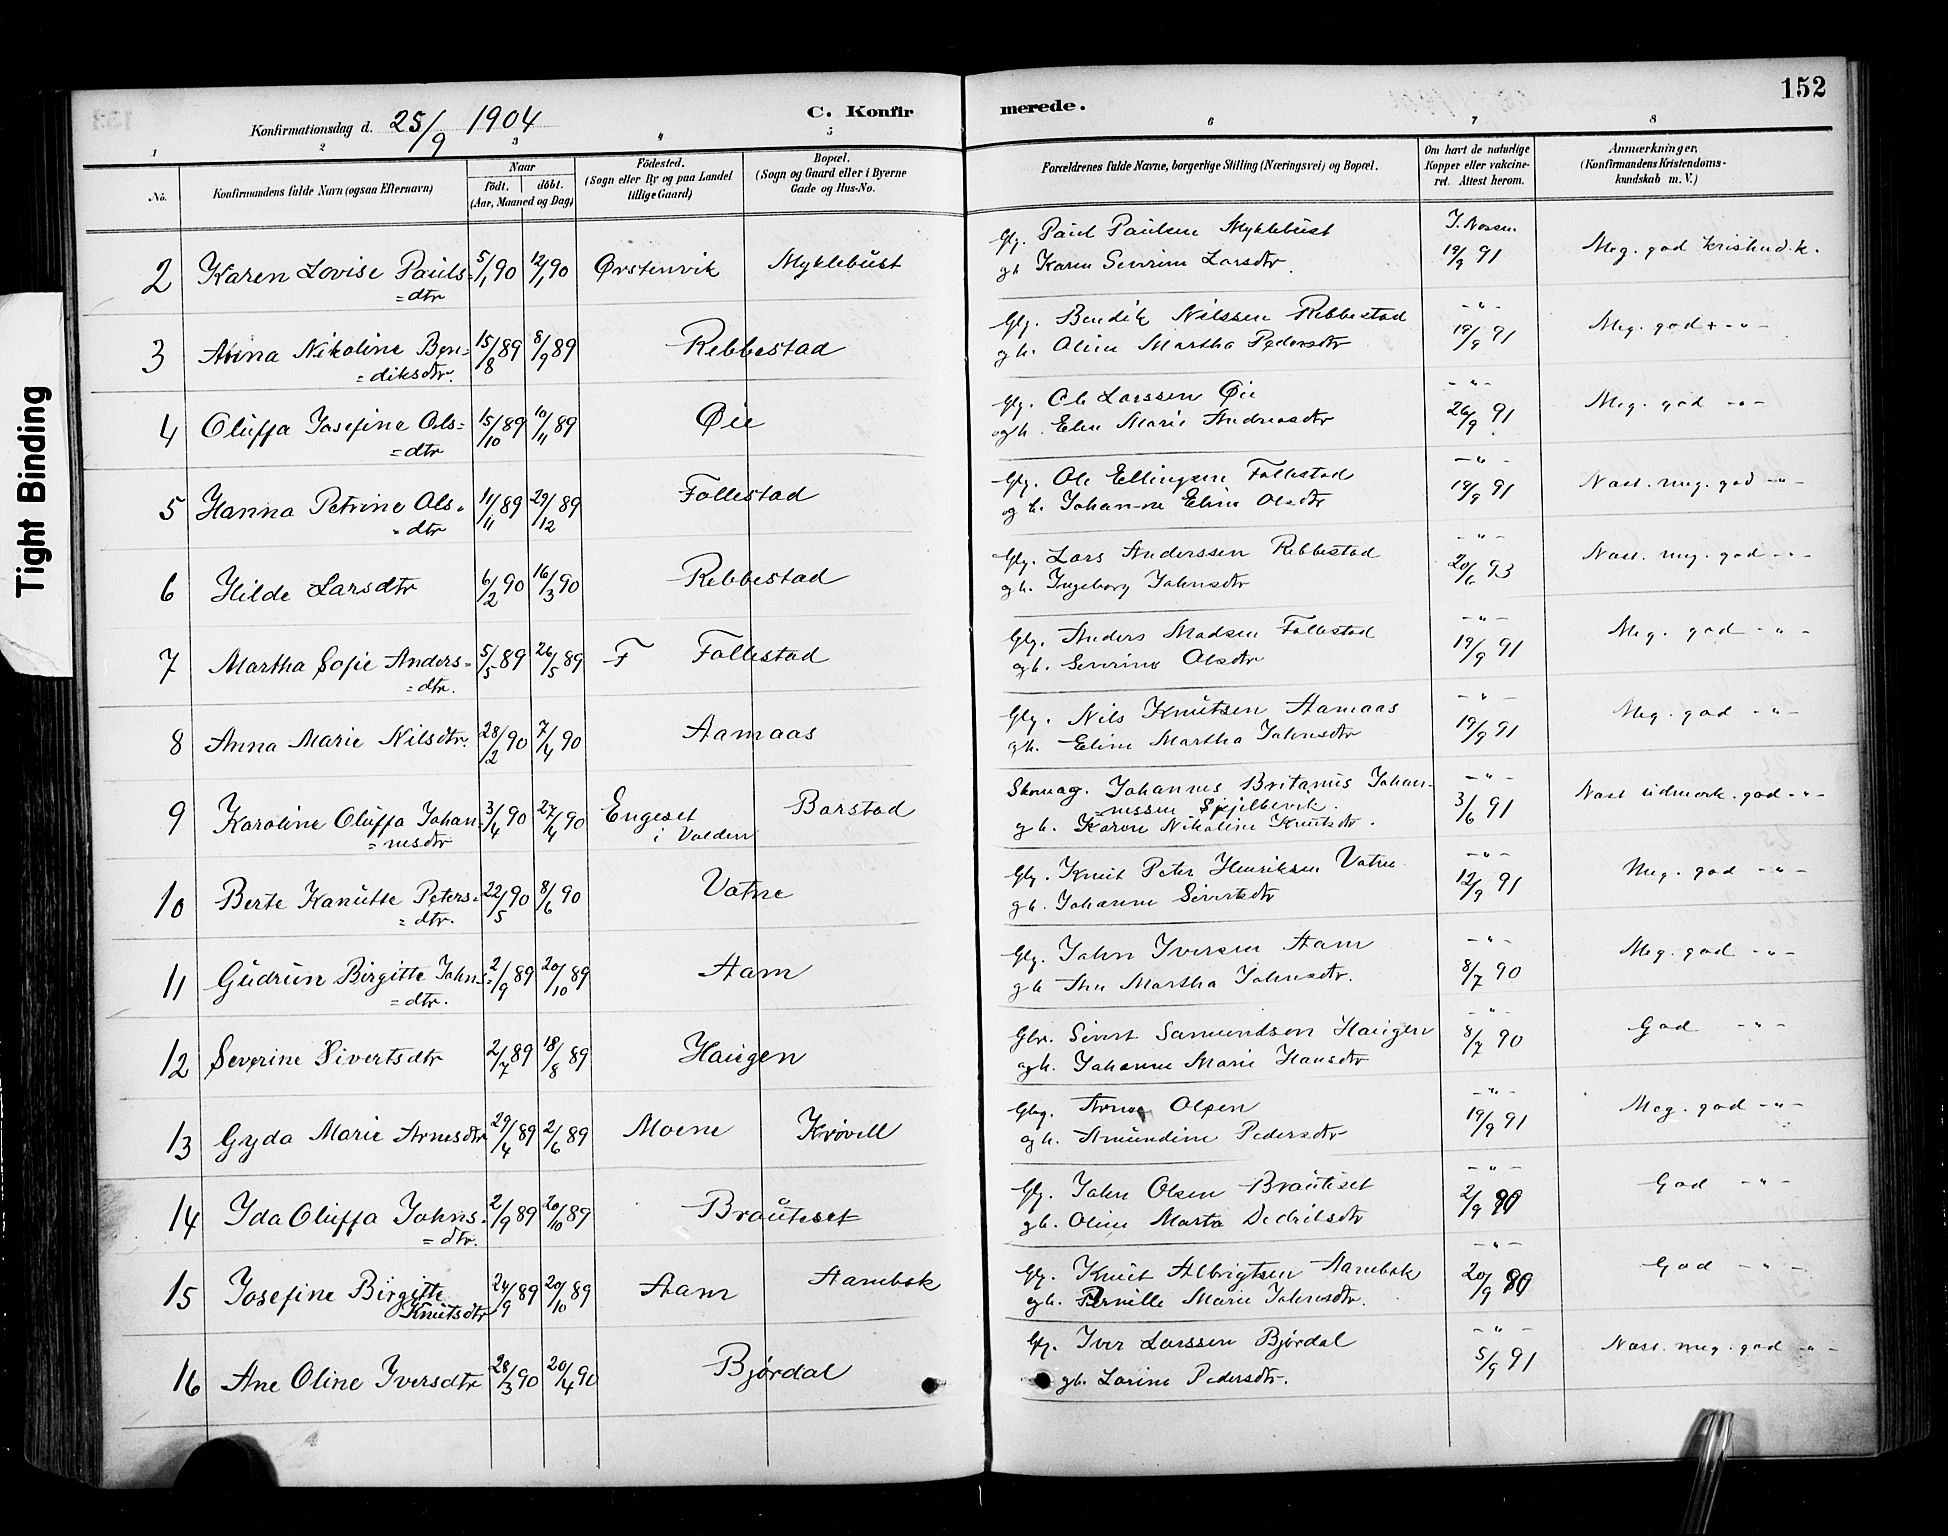 152
Konfirmationsdag d. 25/9 1904
C. Konfirmerede.
1 2 3 4 5 6 7 8
No.
Konfirmandens fulde Navn (ogsaa Efternavn)
Naar
født. døbt.
(Aar, Maaned og Dag)
Fødested.
(Sogn eller By og paa Landet
tillige Gaard)
Bopæl.
(Sogn og Gaard eller i Byerne
Gade og Hus-No.
Forældrenes fulde Navne, borgerlige Stilling (Næringsvei) og Bopæl.
Om havt de naturlige
Kopper eller vakcine-
ret. Attest herom.
Anmærkninger,
(Konfirmandens Kristendoms-
kundskab m. V.)
Tight Binding
2 Karen Lovise Pauls= 5/1 90 12/1 90 Ørstenvik Myklebust
=dtr
Gbg. Paul Paulsen Myklebust
gh Karen Severine Larsdtr. 19/9 91 Meg. god kristend.k.
3 Anna Nikoline Ben= 15/8 89 8/9 89 Rebbestad
=diksdtr.
Gbg. Bendik Nilssen Rebbestad -"-
og h. Oline Martha Pedersdtr 19/9 91 Meg. god + -"-
4 Oluffa Josefine Ols= 15/10 89 10/11 89 Øie
=dtr
Gbg. Ole Larssen Øie -"-
og h. Eline Marie Andreasdtr 26/9 91 Meg. god -"-
5 Hanna Petrine Ols= 11/11 89 29/12 89 Follestad
=dtr
Gbg. Ole Ellingsen Follestad -"-
og h. Johanne Eline Olsdtr 19/9 91 Næst. meg. god -"-
6 Hilde Larsdtr 6/2 90 16/3 90 Rebbestad
Gbg. Lars Anderssen Rebbestad -"-
gh. Ingeborg Johnsdtr 20/6 93 Næst. meg. god -"-
7 Martha Sofie Anders= 5/5 89 26/5 89 F Follestad
=dtr.
Gbg. Anders Madsen Follestad -"-
gh. Severine Olsdtr 19/9 91 Meg. god -"-
8 Anna Marie Nilsdtr. 28/2 90 7/4 90 Aamaas
Gbg. Nils Knutsen Aamaas -"-
gh. Eline Martha Johnsdtr 19/9 91 Meg. god -"-
9 Karoline Oluffa Johan= 3/4 90 27/4 90 Engeset Barstad
=nesdtr i Volden
Skomag. Johannes Britanus Johan- -"-
nessen
gh. Karen Nikoline Knutsdtr. 3/6 91 Næst udmerk. god -"-
10 Berte Kanutte Peters= 22/5 90 8/6 90 Vatne
=dtr.
Gbg. Knut Peter Henriksen Vatne -"-
gh. Johanne Sivertsdtr 12/9 91 Meg. god -"-
11 Gudrun Birgitte John= 2/9 89 20/10 89 Aam
=dtr.
Gbg. John Iversen Aam -"-
gh Ane Martha Johnsdtr. 8/7 90 Meg. god -"-
12 Severine Sivertsdtr 2/7 89 18/8 89 Haugen
Gbr. Sivert Samundsen Haugen -"-
ogh. Johanne Marie Hansdtr 8/7 90 God -"-
13 Gyda Marie Arnesdtr 29/4 89 2/6 89 Moene Krøvell
Gbg. Arne Olsen -"-
og h. Amundine Pedersdtr 19/9 91 Meg. god -"-
14 Ida Oluffa Johns= 2/9 89 20/10 89 Brauteset
=dtr.
Gbg. John Olsen Brauteset -"-
gh. Oline Marta Dedriksdtr 2/9 90 God -"-
15 Josefine Birgitte 24/9 89 20/10 89 Aam Aambak
Knutsdtr
Gbg. Knut Albrigtsen Aambak -"-
ogh. Pernille Marie Johnsdtr. 20/9 God -"-
16 Ane Oline Iversdtr 28/3 90 20/4 90 Bjørdal
Gbg. Iver Larssen Bjørdal -"-
gh. Lovine Pedersdtr. 5/9 91 Næst. meg. god -"-